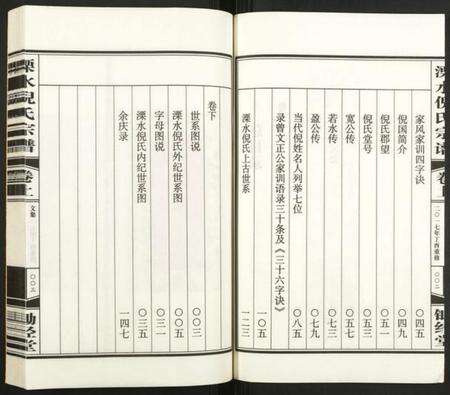 溧水倪氏宗谱
卷首
二〇一七年丁酉重修
〇〇二
锄经堂
家风家训四字诀 〇四五
倪国简介 〇四九
倪氏郡望 〇五一
倪氏堂号 〇五三
宽公传 〇五七
若水传 〇七五
盈公传 〇七九
当代倪姓名人列举七位 〇八五
录曾文正公家训语录三十条及《三十六字诀》 一〇五
溧水倪氏上古世系 一二三
卷下
世系图说 〇〇三
溧水倪氏外纪世系图 〇〇五
字母图说 〇三一
溧水倪氏内纪世系图 〇三五
余庆录 一四七
溧水倪氏宗谱
卷上
文集
〇〇三
锄经堂